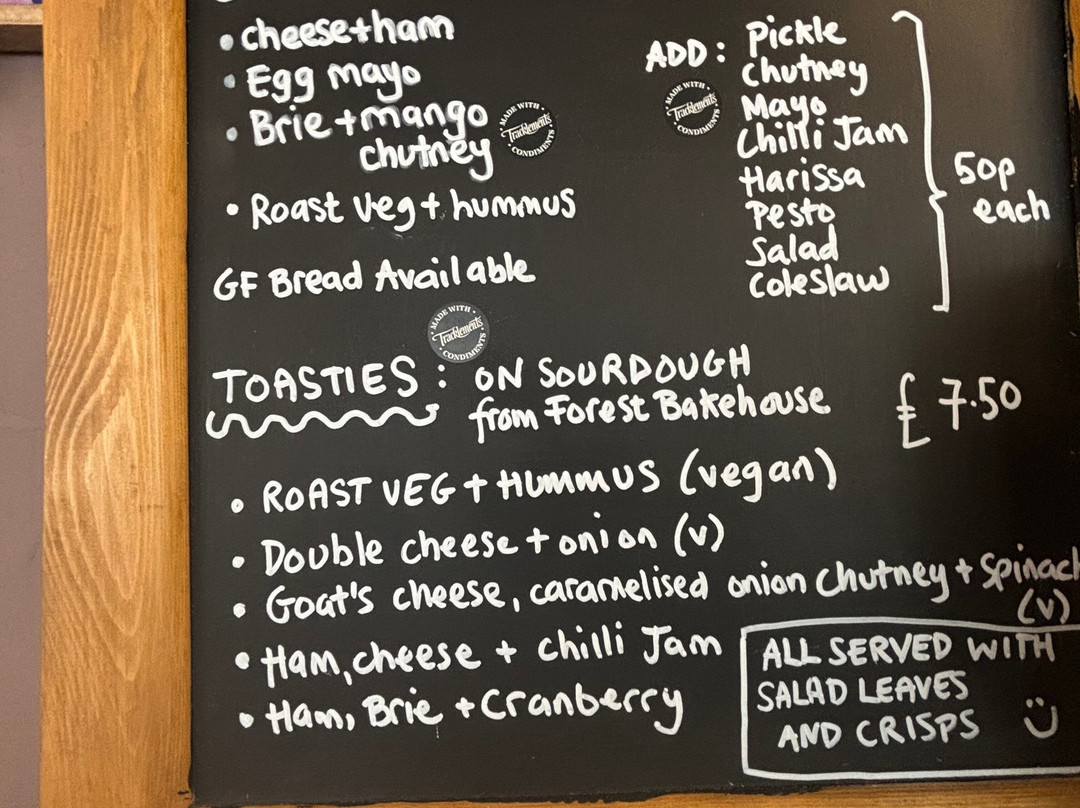 • cheese+ham
• Egg mayo
• Brie + mango
chutney
MADE WITH
Tracklements
CONDIMENTS
• Roast veg + hummus
GF Bread Available
ADD:
MADE WITH
Tracklements
CONDIMENTS
Pickle
Chutney
Mayo
Chilli Jam
Harissa
Pesto
Salad
Coleslaw
50p
each
MADE WITH
Tracklements
CONDIMENTS
TOASTIES: ON SOURDOUGH
from Forest Bakehouse
£7.50
• ROAST VEG + HUMMUS (vegan)
• Double cheese + onion (v)
• Goat's cheese, caramelised onion chutney + Spinach
(v)
• Ham, cheese + chilli Jam
• Ham, Brie + Cranberry
ALL SERVED WITH
SALAD LEAVES
AND CRISPS